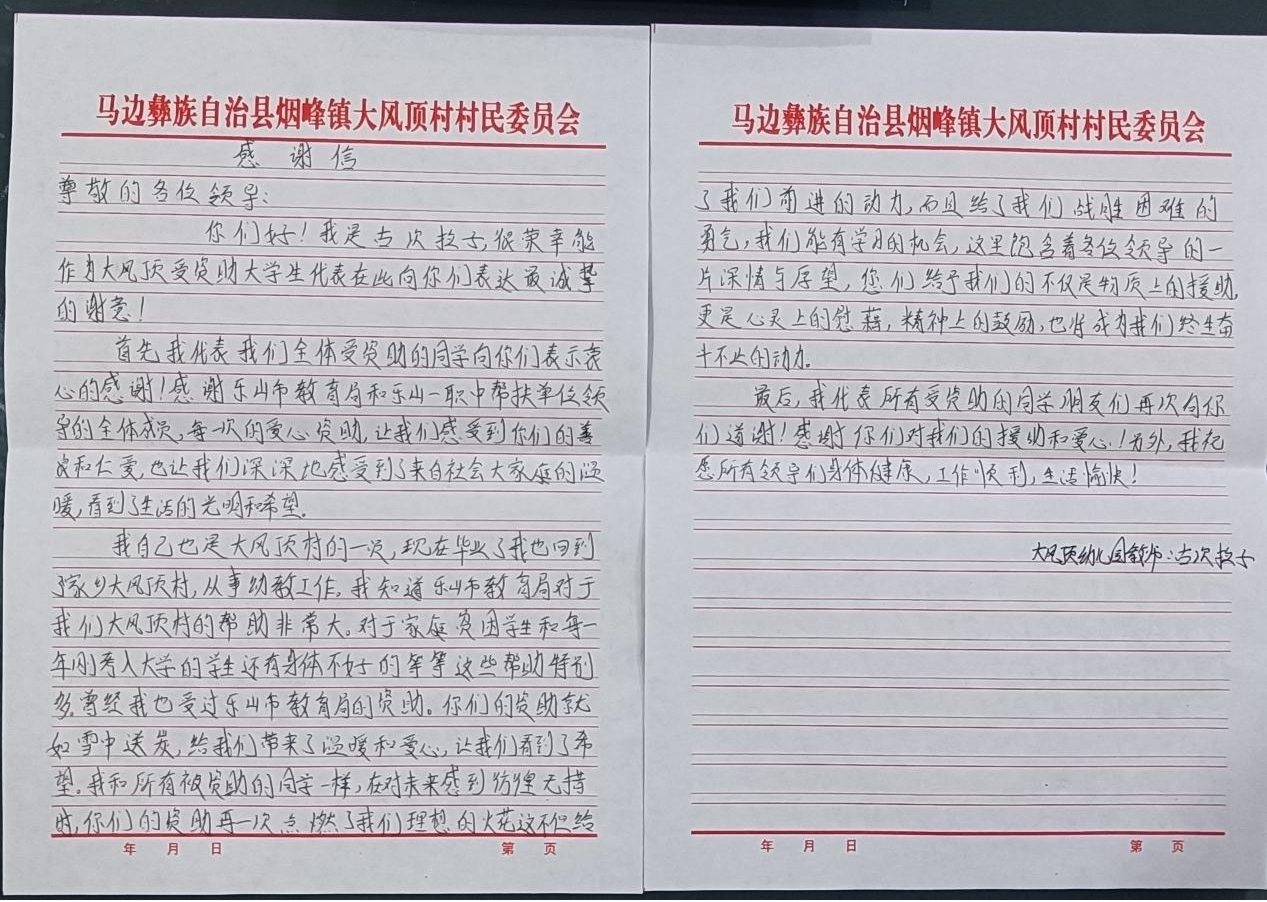 马边彝族自治县烟峰镇大风顶村村民委员会
感谢信
尊敬的各位领导：
你们好！我是吉次拉子，很荣幸能
作为大风顶受资助大学生代表在此向你们表达最诚挚
的谢意！
首先我代表我们全体受资助的同学向你们表示衷
心的感谢！感谢乐山市教育局和乐山一职中帮扶单位领
导的全体成员，每一次的爱心资助，让我们感受到你们的善
良和仁爱，也让我们深深地感受到了来自社会大家庭的温
暖，看到了生活的光明和希望。
我自己也是大风顶村的一员，现在毕业了我也回到
了家乡大风顶村，从事幼教工作。我知道乐山市教育局对于
我们大风顶村的帮助非常大。对于家庭贫困学生和每一
年刚考入大学的学生还有身体不好的等等这些帮助特别
多，曾经我也受过乐山市教育局的资助。你们的资助就
如雪中送炭，给我们带来了温暖和爱心，让我们看到了希
望。我和所有被资助的同学一样，在对未来感到彷徨无措
时，你们的资助再一次点燃了我们理想的火花这不但给
年 月 日 第 页
马边彝族自治县烟峰镇大风顶村村民委员会
了我们前进的动力，而且给了我们战胜困难的
勇气，我们能有学习的机会，这里饱含着各位领导的一
片深情与厚望，您们给予我们的不仅是物质上的援助，
更是心灵上的慰藉，精神上的鼓励，也将成为我们终生奋
斗不止的动力。
最后，我代表所有受资助的同学朋友们再次向你
们道谢！感谢你们对我们的援助和爱心！另外，我祝
愿所有领导们身体健康，工作顺利，生活愉快！
大风顶幼儿园教师：吉次拉子
年 月 日 第 页